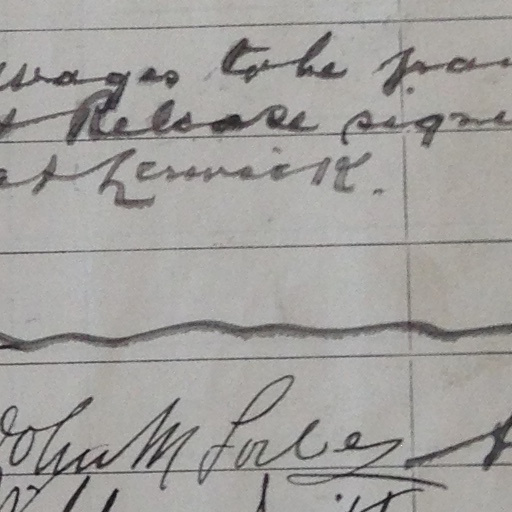 wages to be pai
& Release signe
at Lerwick.
John M Forbes